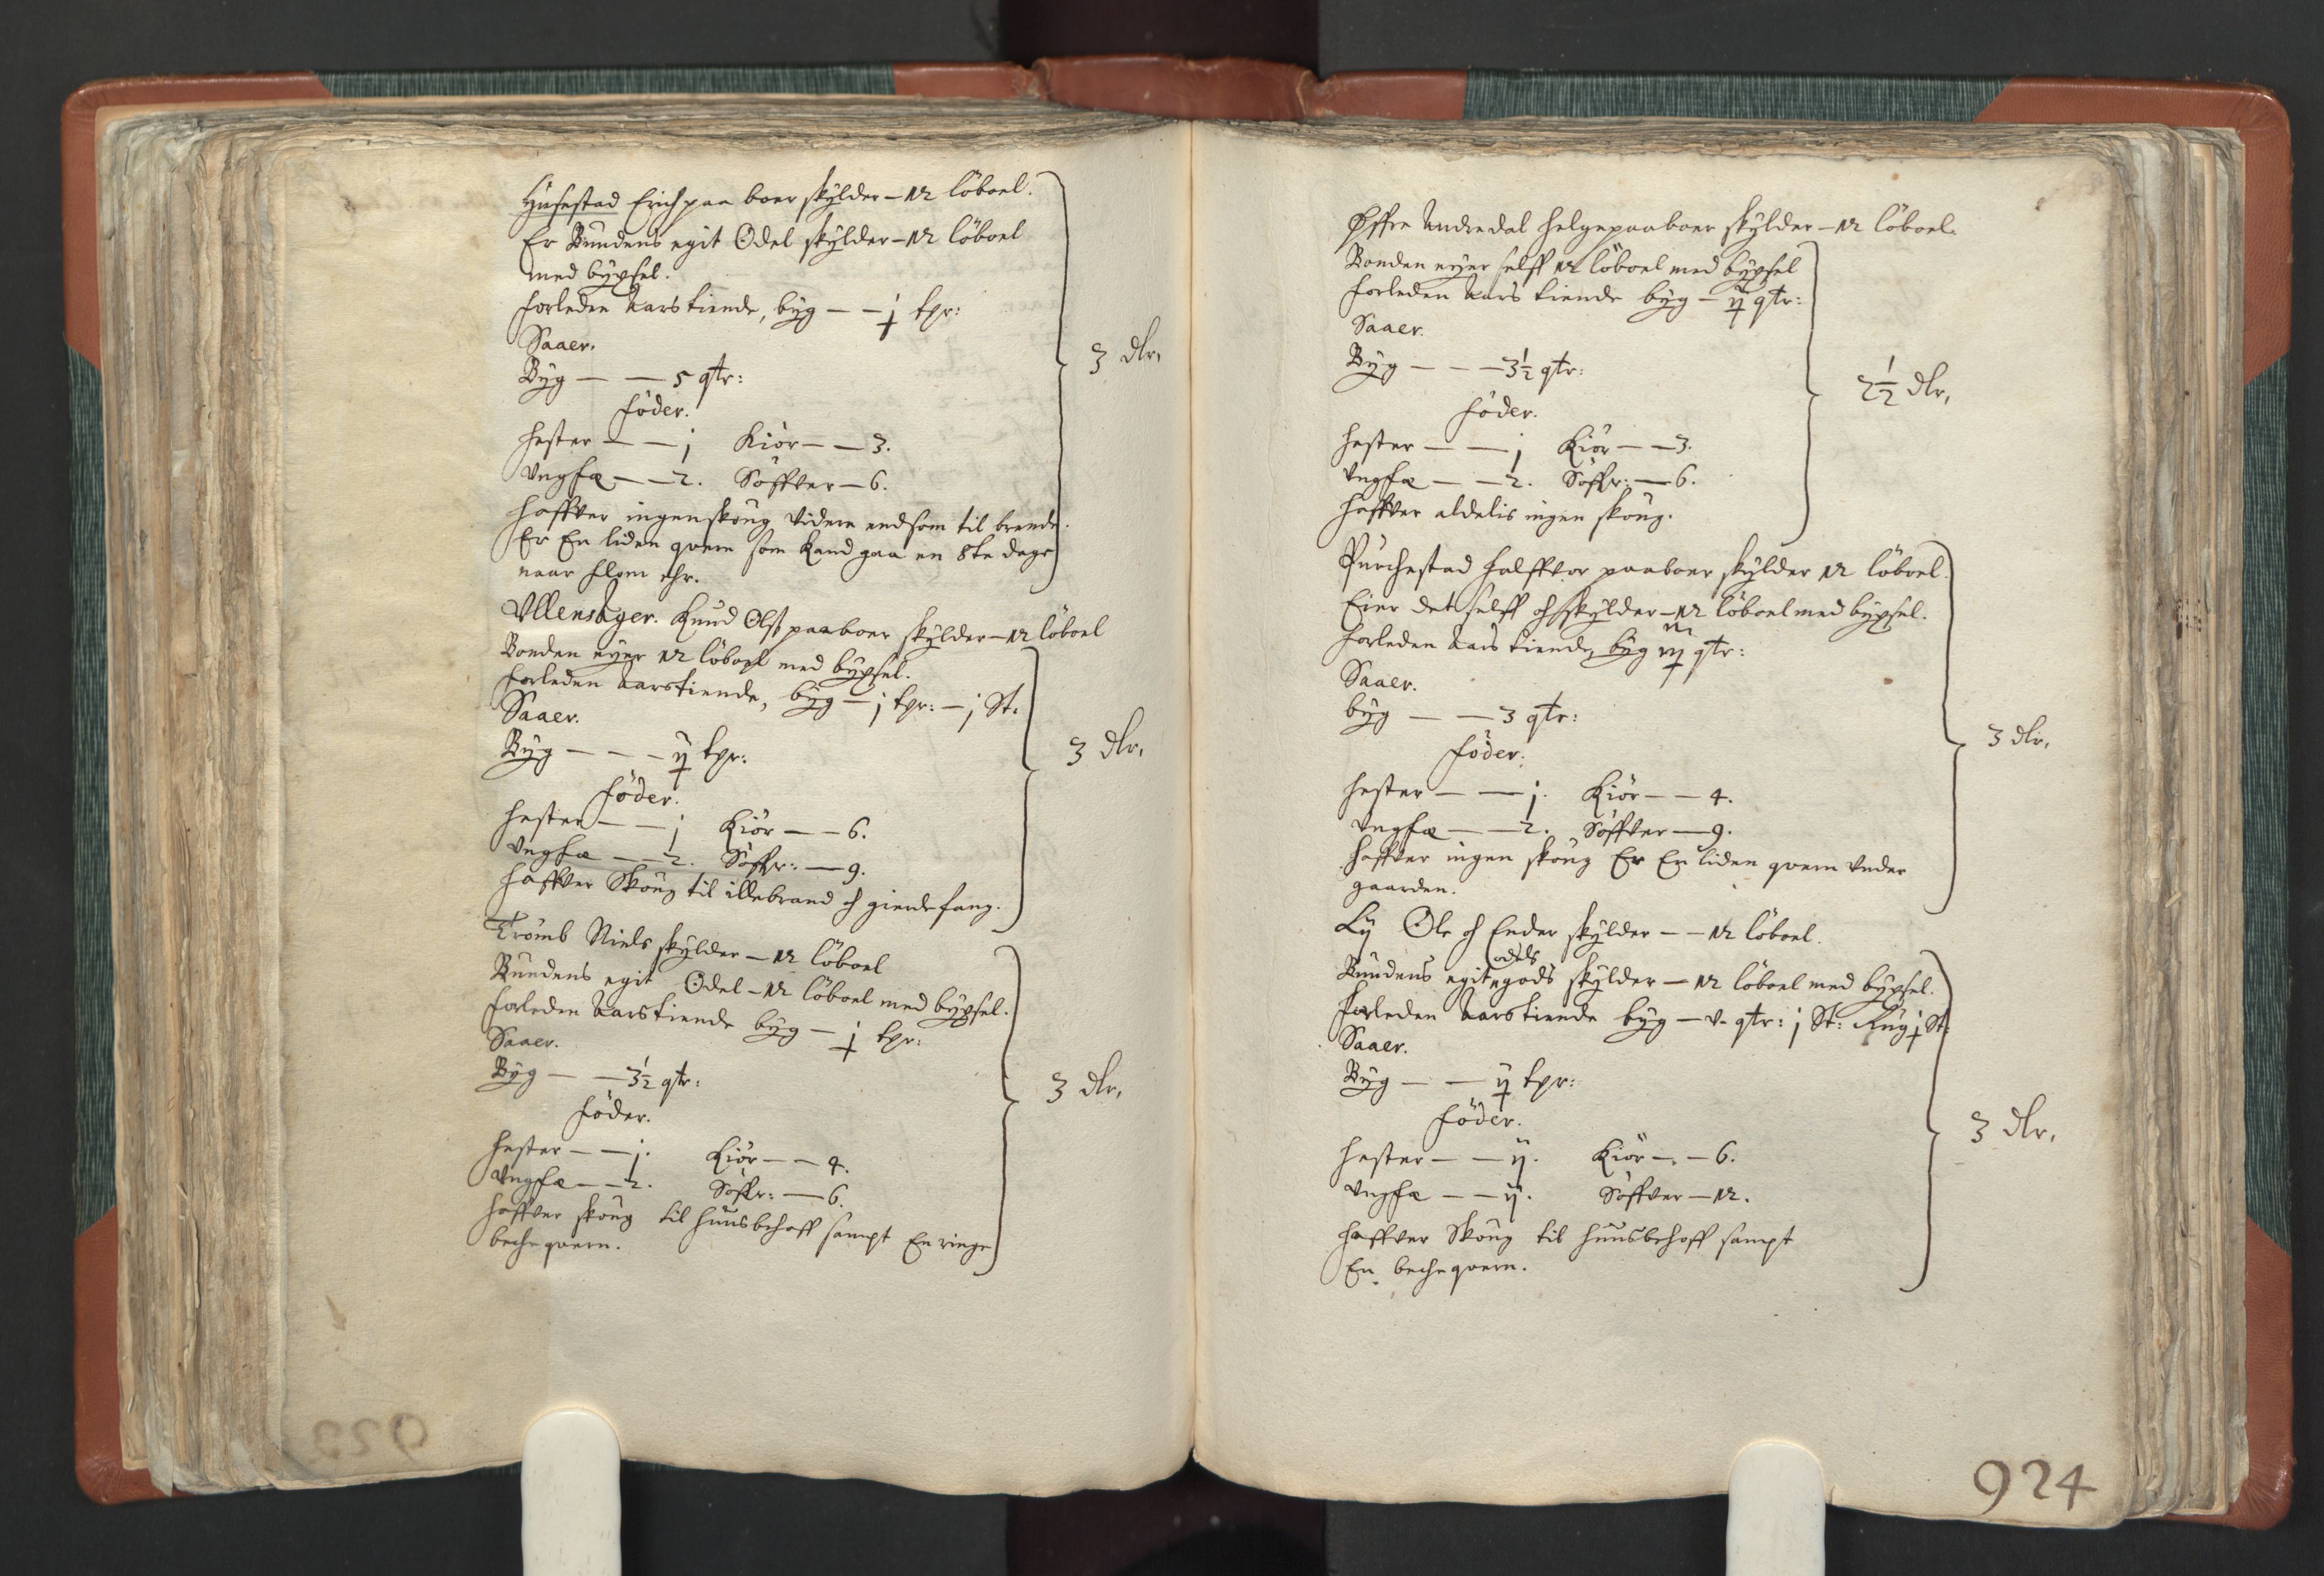 Husestad Erich paa boer skylder – 12 löboel.
Er Bundens egit Odel skylder – 12 löboel
med bÿxsel.
forleden Aars tiende, bÿg – – j tpr:
Saaer.
Bÿg – – 5 qtr:
föder.
hester – – j Kiör – – 3.
Vngfæ – – 2. Söffver – 6.
haffver ingen skoug videre end som til brende.
Er En liden qvern som kand gaa en 8te dage
naar flom ehr.
3 dlr,
Ullensager. Knud Olss paaboer skylder – 12 löboel
Bonden eyer 12 löboel med bÿxsel.
forleden Aars tiende, bÿg – j tpr: – j St.
Saaer.
Bÿg – – – ij tpr:
föder.
hester – – j Kiör – – 6.
Vngfæ – – 2. Söffr: – 9.
haffver Skoug til illebrand och gierdefang.
3 dlr,
Tromb Niels skylder – 12 löboel
Bundens egit Odel – 12 löboel med bÿxsel.
forleden Aars tiende bÿg – j tpr:
Saaer.
Bÿg – – 3½ qtr:
föder.
hester – – j. Kiör – – 4.
Vngfæ – – 2. Söffr: – 6.
haffver skoug til huusbehoff sampt En ringe
beche qvern.
3 dlr,
923
Öffre Andredal Helge paaboer skylder – 12 löboel.
Bonden eyer selff 12 löboel med bÿxsel
forleden Aars tiende bÿg – ij qtr:
Saaer.
Bÿg – – – 3½ qtr:
föder.
hester – – j Kiör – – 3.
Vngfæ – – 2. Söffr: – 6.
haffver aldelis ingen skoug.
2½ dlr,
Purchestad Halffvor paaboer skylder 12 löboel.
Eier det selff och skylder – 12 löboel med bÿxsel.
forleden Aars tiende, bÿg iij qtr:
Saaer.
bÿg – – 3 qtr:
föder.
hester – – j. Kiör – – 4.
Vngfæ – – 2. Söffver – 9.
haffver ingen skoug Er En liden qvern under
gaarden.
3 dlr,
Lÿ Ole och Ender skylder – – 12 löboel.
Bundens egit odels gods skylder – 12 löboel med bÿxsel.
forleden Aars tiende bÿg – v qtr: j St: Rug j St:
Saaer.
Bÿg – – ij tpr:
föder.
hester – – ij. Kiör – – 6.
Vngfæ – – ij. Söffver – 12.
haffver Skoug til huusbehoff sampt
En beche qvern.
3 dlr,
924